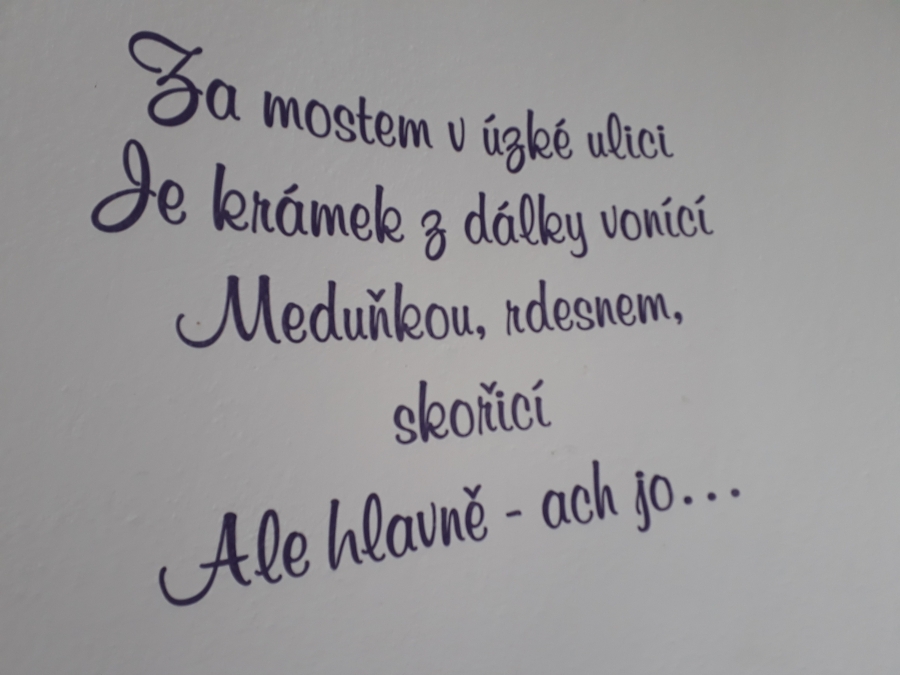 Za mostem v úzké ulici
Je krámek z dálky vonící
Meduňkou, rdesnem,
skořicí
Ale hlavně - ach jo...